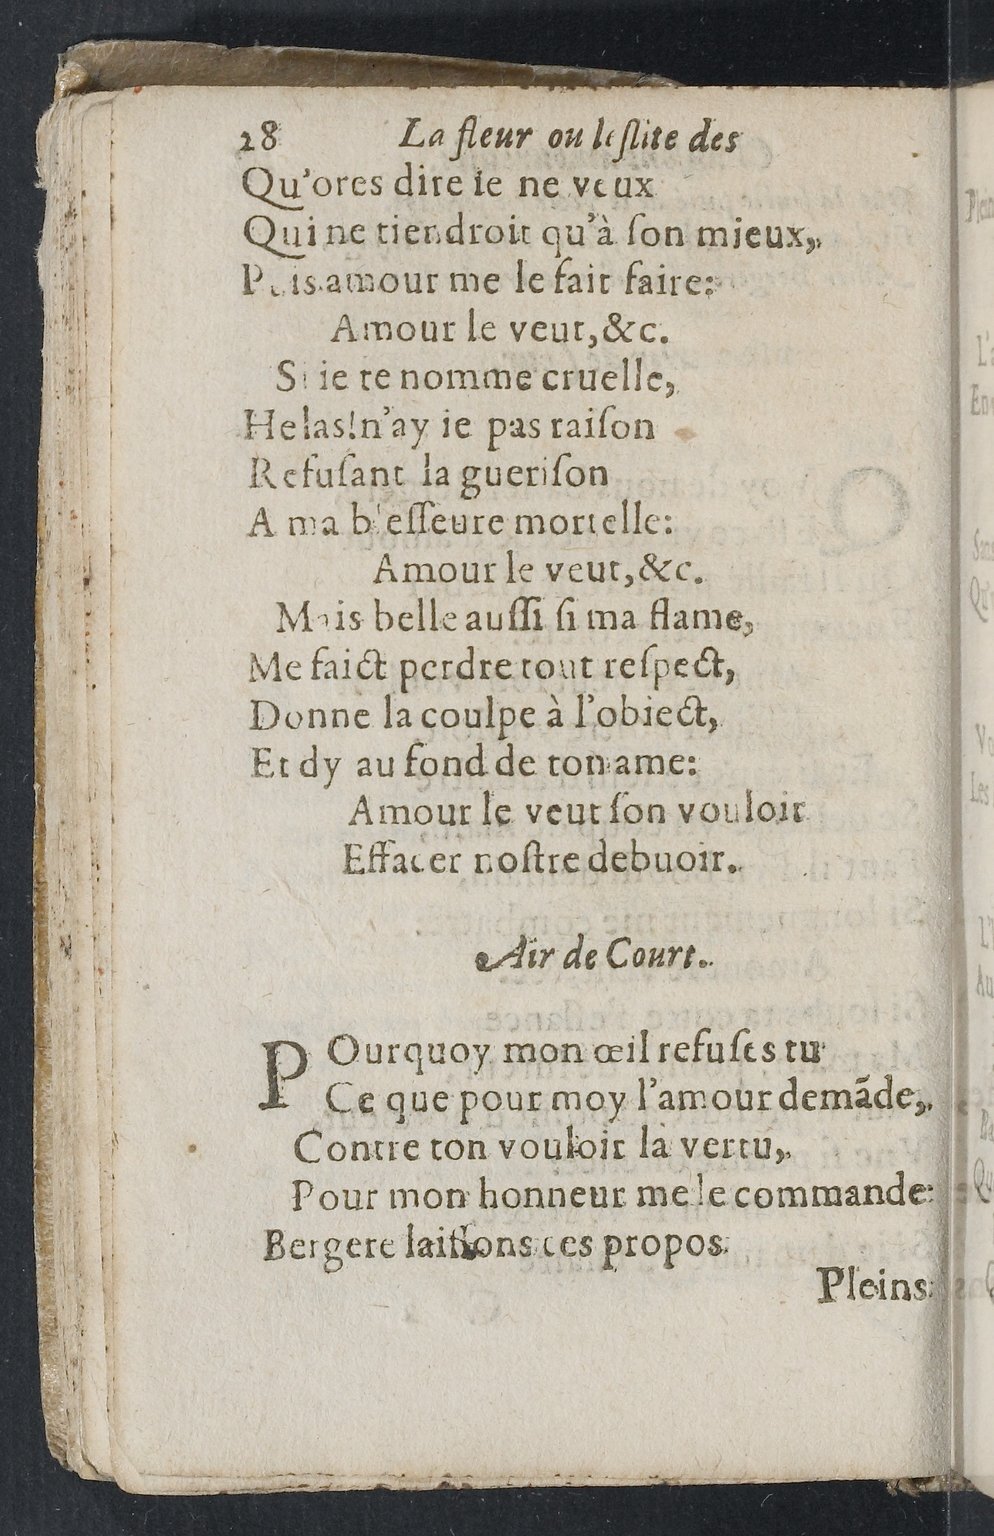 28 La fleur ou leſlite des
Qu'ores dire ie ne veux
Qui ne tiendroit qu'à ſon mieux,
Puis amour me le fait faire:
Amour le veut, &c.
Si ie te nomme cruelle,
Helas! n'ay ie pas raiſon
Refuſant la gueriſon
A ma bleſſeure mortelle:
Amour le veut, &c.
Mais belle auſſi ſi ma flame,
Me faict perdre tout reſpect,
Donne la coulpe à l'obiect,
Et dy au fond de ton ame:
Amour le veut ſon vouloir
Effacer noſtre debuoir.
Air de Court.
POurquoy mon œil refuſes tu
Ce que pour moy l'amour demãde,
Contre ton vouloir la vertu,
Pour mon honneur me le commande:
Bergere laiſſons ces propos
Pleins